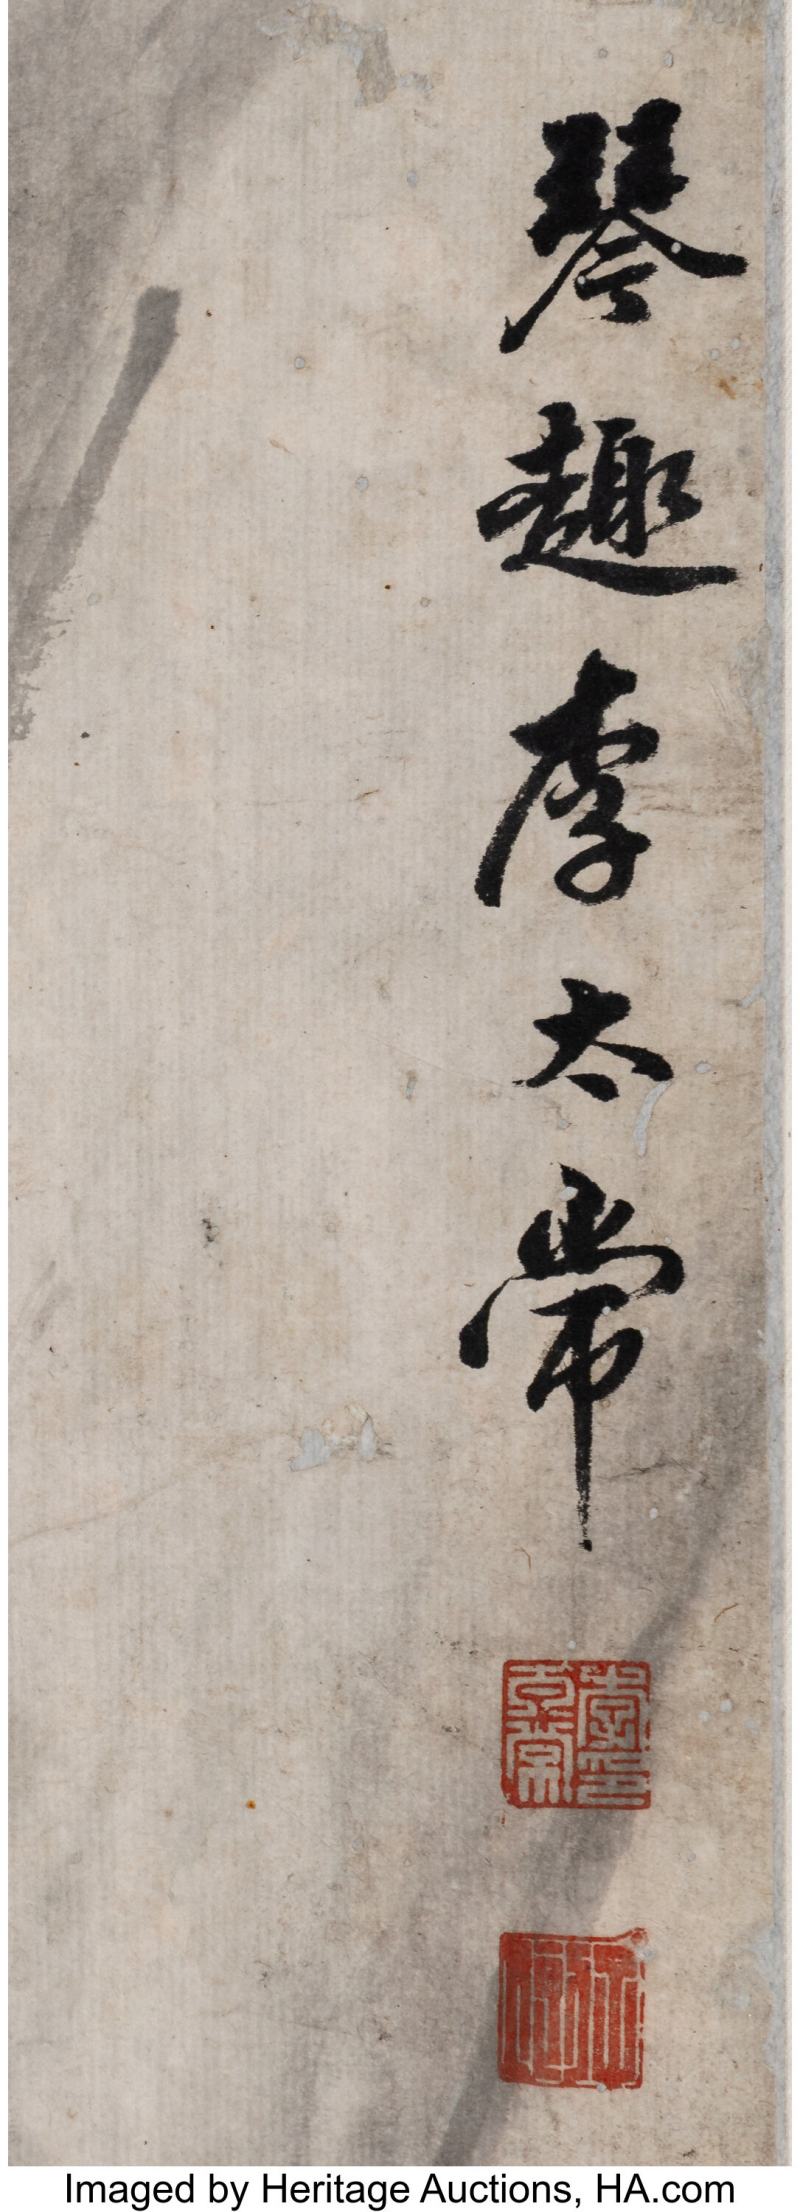 琴趣李太常
Imaged by Heritage Auctions, HA.com